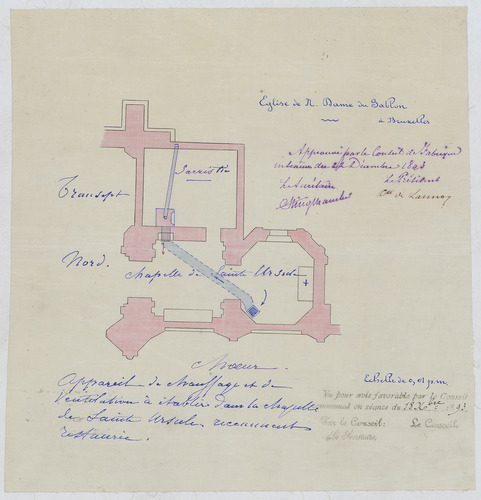 Eglise de N. Dame du Sablon
à Bruxelles
Approuvé par le Conseil de Fabrique
en séance du Décembre 1893
Le Secrétaire Le Président
Cte de Lannoy
Sacristie
Transept
Nord.
Chapelle de Sainte Ursule
Chœur.
Appareil de chauffage et de
ventilation à établir dans la chapelle
de Sainte Ursule, récemment
restaurée.
Echelle de 0,01 p.m.
Vu pour avis favorable par le Conseil
communal en séance du 18 Xbre 1893
Par le Conseil: Le Conseil
Le Secrétaire,